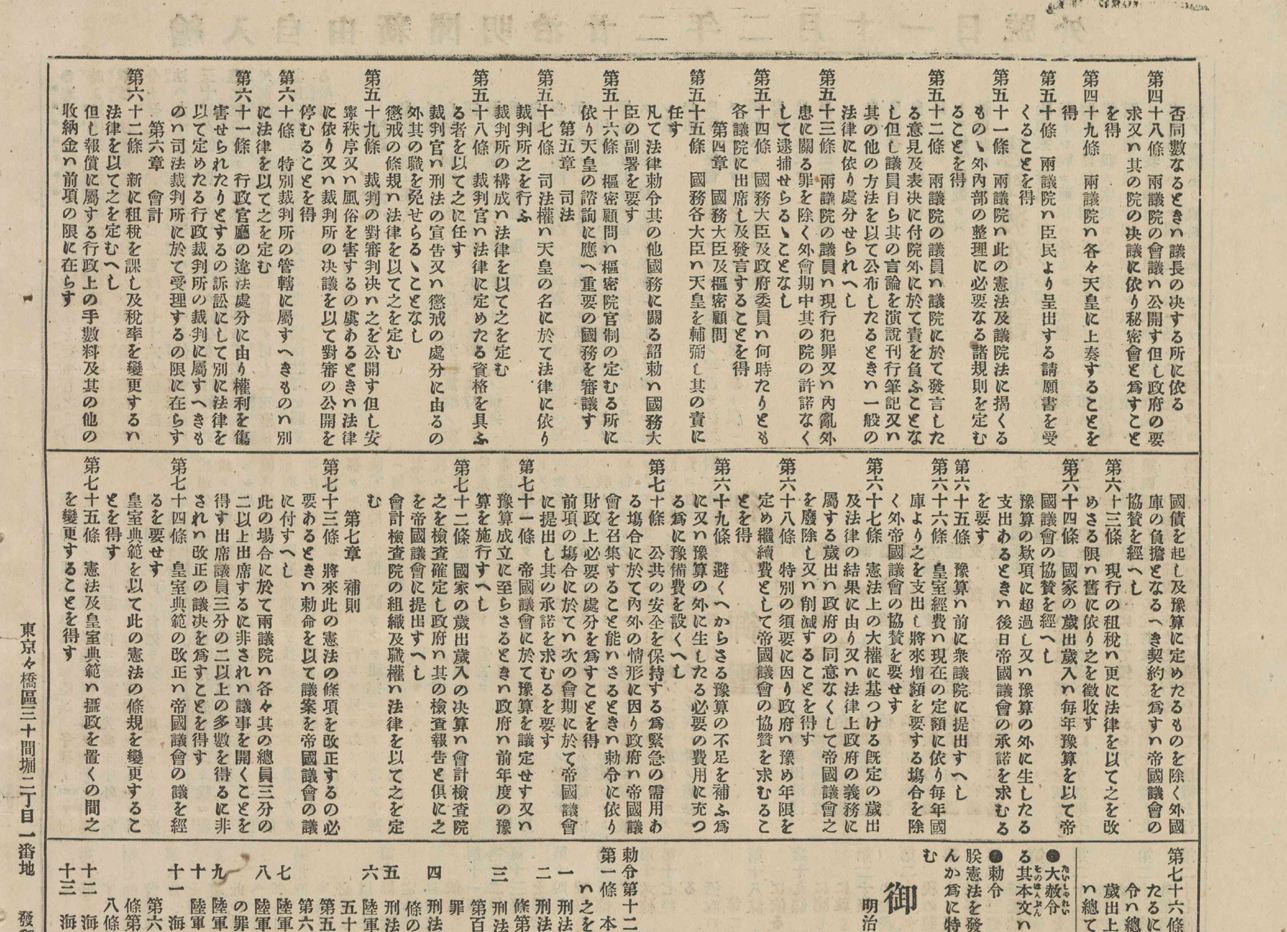 否同數なるときハ議長の決する所に依る
第四十八條 兩議院の會議ハ公開す但し政府の要
求又ハ其の院の決議に依り秘密會と爲すこと
を得
第四十九條 兩議院ハ各々天皇に上奏することを
得
第五十條 兩議院ハ臣民より呈出する請願書を受
くることを得
第五十一條 兩議院ハ此の憲法及議院法に揭くる
ものゝ外內部の整理に必要なる諸規則を定む
ることを得
第五十二條 兩議院の議員ハ議院に於て發言した
る意見及表決に付院外に於て責を負ふことな
し但し議員自ら其の言論を演說刊行筆記又ハ
其の他の方法を以て公布したるときハ一般の
法律に依り處分せられへし
第五十三條 兩議院の議員ハ現行犯罪又ハ內亂外
患に關る罪を除く外會期中其の院の許諾なく
して逮捕せらるゝことなし
第五十四條 國務大臣及政府委員ハ何時たりとも
各議院に出席し及發言することを得
第四章 國務大臣及樞密顧問
第五十五條 國務各大臣ハ天皇を輔弼し其の責に
任す
凡て法律勅令其の他國務に關る詔勅ハ國務大
臣の副署を要す
第五十六條 樞密顧問ハ樞密院官制の定むる所に
依り天皇の諮詢に應へ重要の國務を審議す
第五章 司法
第五十七條 司法權ハ天皇の名に於て法律に依り
裁判所之を行ふ
裁判所の構成ハ法律を以て之を定む
第五十八條 裁判官ハ法律に定めたる資格を具ふ
る者を以て之に任す
裁判官ハ刑法の宣告又ハ懲戒の處分に由るの
外其の職を免せらるゝことなし
懲戒の條規ハ法律を以て之を定む
第五十九條 裁判の對審判决ハ之を公開す但し安
寧秩序又ハ風俗を害するの虞あるときハ法律
に依り又ハ裁判所の决議を以て對審の公開を
停むることを得
第六十條 特別裁判所の管轄に屬すへきものハ別
に法律を以て之を定む
第六十一條 行政官廳の違法處分に由り權利を傷
害せられたりとするの訴訟にして別に法律を
以て定めたる行政裁判所の裁判に屬すへきも
のハ司法裁判所に於て受理するの限に在らす
第六章 會計
第六十二條 新に租稅を課し及稅率を變更するハ
法律を以て之を定むへし
但し報償に屬する行政上の手數料及其の他の
收納金ハ前項の限に在らす
國債を起し及豫算に定めたるものを除く外國
庫の負擔となるへき契約を爲すハ帝國議會の
協贊を經へし
第六十三條 現行の租稅ハ更に法律を以て之を改
めさる限ハ舊に依り之を徵收す
第六十四條 國家の歲出歲入ハ每年豫算を以て帝
國議會の協贊を經へし
豫算の欵項に超過し又ハ豫算の外に生したる
支出あるときハ後日帝國議會の承諾を求むる
を要す
第六十五條 豫算ハ前に衆議院に提出すへし
第六十六條 皇室經費ハ現在の定額に依り每年國
庫より之を支出し將來增額を要する塲合を除
く外帝國議會の協贊を要せす
第六十七條 憲法上の大權に基つける旣定の歲出
及法律の結果に由り又ハ法律上政府の義務に
屬する歲出ハ政府の同意なくして帝國議會之
を廢除し又ハ削減することを得す
第六十八條 特別の須要に因り政府ハ豫め年限を
定め繼續費として帝國議會の協贊を求むるこ
とを得
第六十九條 避くへからさる豫算の不足を補ふ爲
に又ハ豫算の外に生したる必要の費用に充つ
る爲に豫備費を設くへし
第七十條 公共の安全を保持する爲緊急の需用あ
る塲合に於て內外の情形に因り政府ハ帝國議
會を召集すること能ハさるときハ勅令に依り
財政上必要の處分を爲すことを得
前項の塲合に於てハ次の會期に於て帝國議會
に提出し其の承諾を求むるを要す
第七十一條 帝國議會に於て豫算を議定せす又ハ
豫算成立に至らさるときハ政府ハ前年度の豫
算を施行すへし
第七十二條 國家の歲出歲入の決算ハ會計檢査院
之を檢査確定し政府ハ其の檢査報告と俱に之
を帝國議會に提出すへし
會計檢査院の組織及職權ハ法律を以て之を定
む
第七章 補則
第七十三條 將來此の憲法の條項を改正するの必
要あるときハ勅命を以て議案を帝國議會の議
に付すへし
此の塲合に於て兩議院ハ各々其の總員三分の
二以上出席するに非されハ議事を開くことを
得す出席議員三分の二以上の多數を得るに非
されハ改正の議决を爲すことを得す
第七十四條 皇室典範の改正ハ帝國議會の議を經
るを要せす
皇室典範を以て此の憲法の條規を變更するこ
とを得す
第七十五條 憲法及皇室典範ハ攝政を置くの間之
を變更することを得す
第七十六條
たるに
令ハ總
歲出上
ハ總て
●大赦令
る其本文ハ
●勅令
朕憲法を發
んか爲に特
む
御
明治
勅令第十二
第一條 本
ハ之を
一 刑法
二 刑法
條第
三 刑法
第百
罪
四 刑法
條の
五 刑法
六 陸軍
五十
第五
第六
七 陸軍
八 陸軍
の罪
九 陸軍
十 陸軍
條第
十一 海
第六
八條
十二 海
十三 海
東京々橋區三十間堀二丁目一番地 發